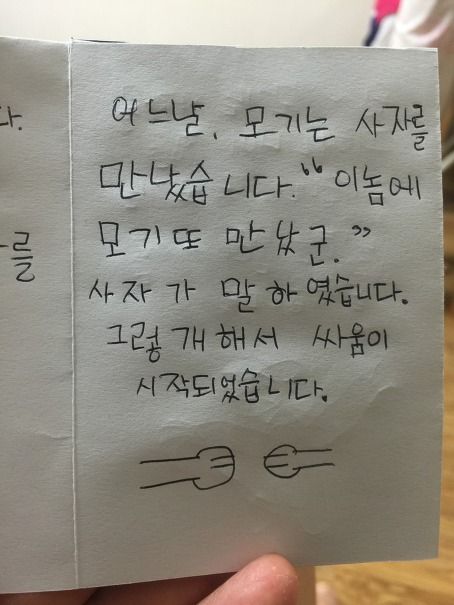 를
어느날, 모기는 사자를
만났습니다. “이놈에
모기 또 만났군.”
사자가 말하였습니다.
그렇개해서 싸움이
시작되었습니다.